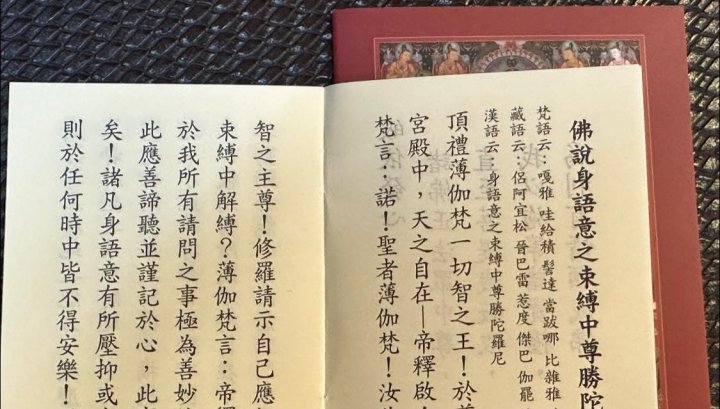 佛說身語意之束縛中尊勝陀
梵語云：嘎雅 哇給積 髻達 當跋哪 比雜雅
藏語云：侶阿宜松 晉巴雷 惹度 傑巴 伽罷
漢語云：身語意之束縛中尊勝陀羅尼
頂禮薄伽梵一切智之王！於
宮殿中，天之自在—帝釋啟
梵言：諾！聖者薄伽梵！汝
智之主尊！修羅請示自己應
束縛中解縛？薄伽梵言：帝
於我所有請問之事極為善妙
此應善諦聽並謹記於心，此
矣！諸凡身語意有所壓抑或
則於任何時中皆不得安樂！